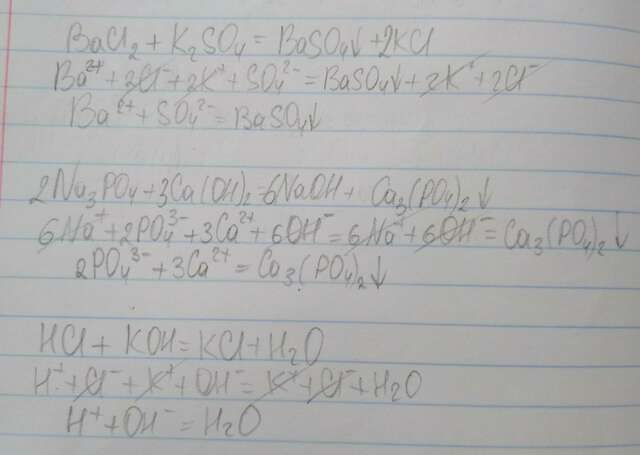 BaCl₂ + K₂SO₄ = BaSO₄↓ + 2KCl
Ba²⁺ + 2Cl⁻ + 2K⁺ + SO₄²⁻ = BaSO₄↓ + 2K⁺ + 2Cl⁻
Ba²⁺ + SO₄²⁻ = BaSO₄↓
2Na₃PO₄ + 3Ca(OH)₂ = 6NaOH + Ca₃(PO₄)₂↓
6Na⁺ + 2PO₄³⁻ + 3Ca²⁺ + 6OH⁻ = 6Na⁺ + 6OH⁻ = Ca₃(PO₄)₂↓
2PO₄³⁻ + 3Ca²⁺ = Ca₃(PO₄)₂↓
HCl + KOH = KCl + H₂O
H⁺ + Cl⁻ + K⁺ + OH⁻ = K⁺ + Cl⁻ + H₂O
H⁺ + OH⁻ = H₂O